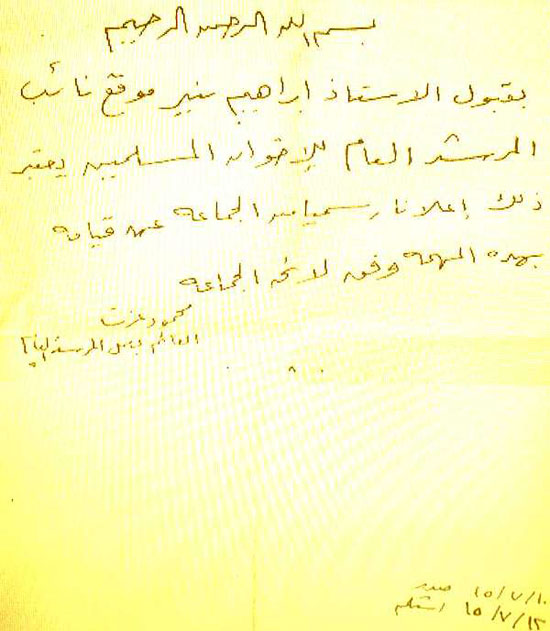 بسم الله الرحمن الرحيم
بقبول الاستاذ ابراهيم منير موقع نائب
المرشد العام للإخوان المسلمين يعتبر
ذلك إعلانا رسميا من الجماعة عن قيامه
بهذه المهمة وفق لائحة الجماعة
محمود عزت
القائم بعمل المرشد العام
١٥/٧/١٠ صدر
١٥/٧/١٢ استلم